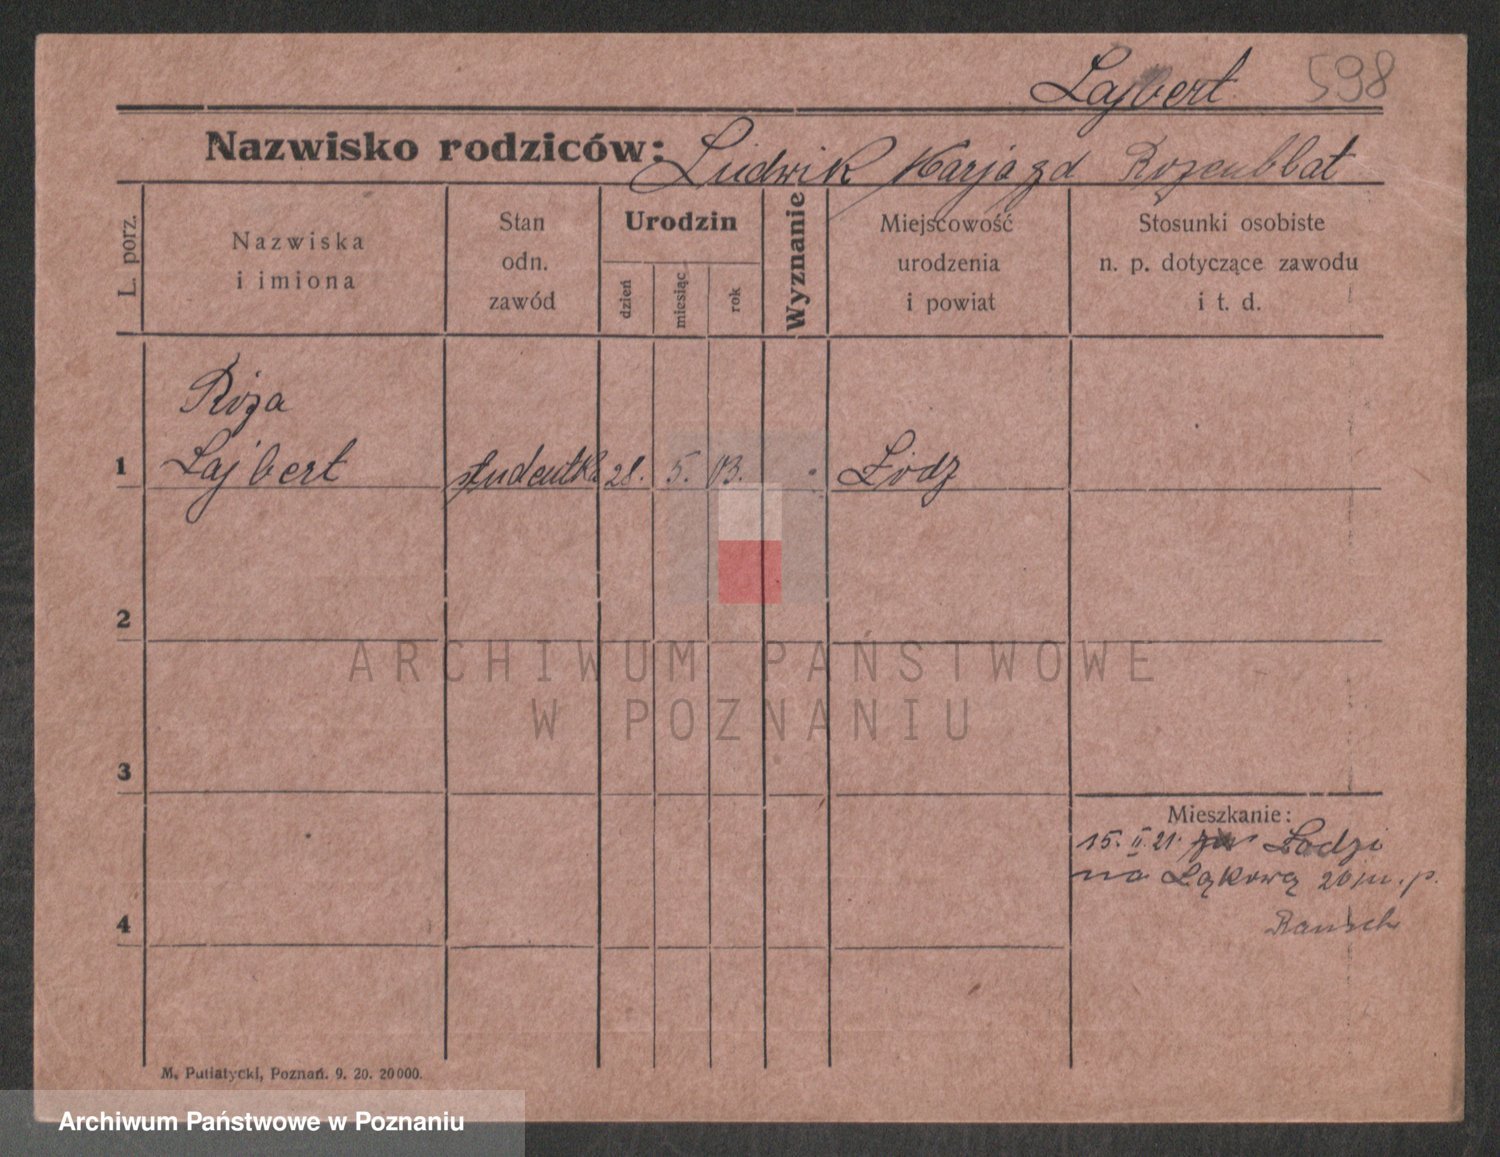 Lajbert 598
Nazwisko rodziców: Ludwik Rozenblat
L. porz.
Nazwiska
i imiona
Stan
odn.
zawód
Urodzin
dzień
miesiąc
rok
Wyznanie
Miejscowość
urodzenia
i powiat
Stosunki osobiste
n. p. dotyczące zawodu
i t. d.
Róża
1 Lajbert studentka 28. 5. 03. Łódz
2
ARCHIWUM PAŃSTWOWE
W POZNANIU
3
Mieszkanie:
15. II. 21. Łodzi
na Łąkową 20 m. p.
4
Rausch
M. Putiatycki, Poznań. 9. 20. 20000.
Archiwum Państwowe w Poznaniu